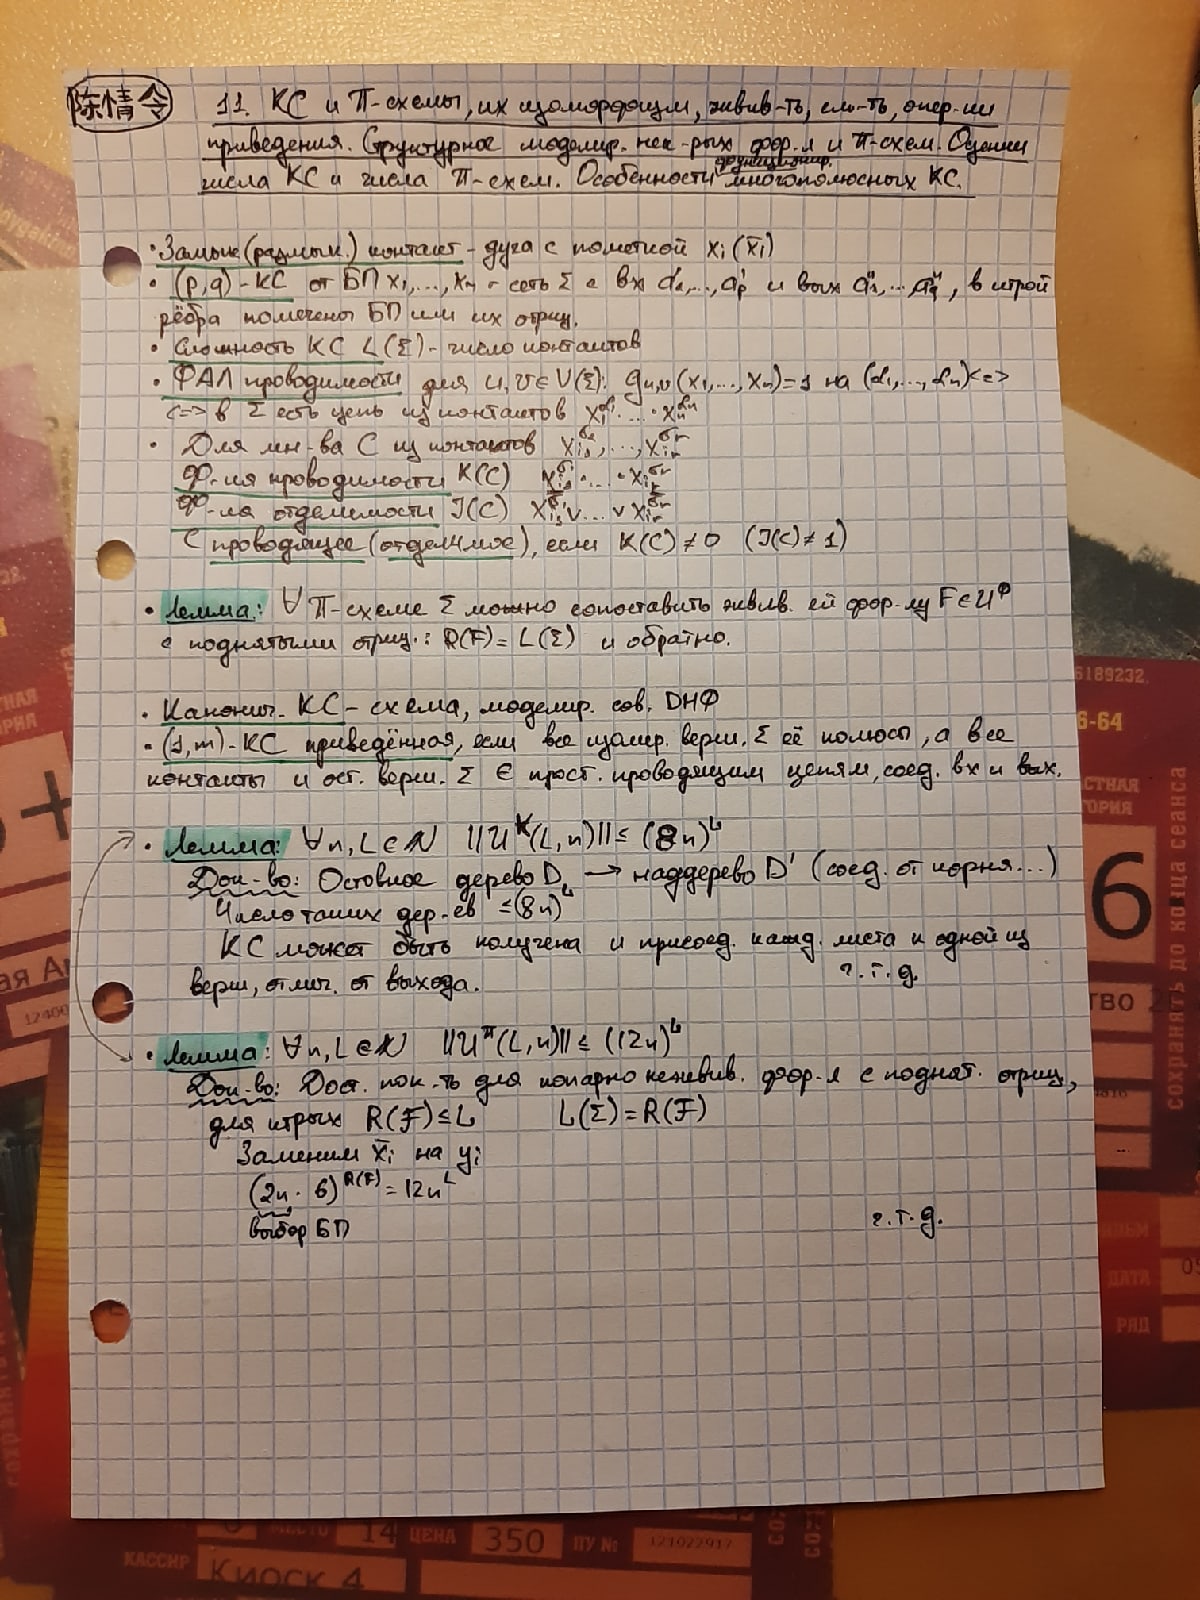 陈情令
11. КС и П-схемы, их изоморфизм, эквив-ть, сл-ть, опер-ии
приведения. Структурное моделир. нек-рых фор-л и П-схем. Оценки
функционир.
числа КС и числа П-схем. Особенности многополюсных КС.
• Замык. (размык.) контакт - дуга с пометкой xᵢ (x̄ᵢ)
• (p,q)-КС от БП x₁,...,xₙ - сеть Σ с вх a'₁,...,a'ₚ и вых a''₁,...,a''_q, в ктрой
рёбра помечены БП или их отриц.
• Сложность КС L(Σ) - число контактов
• ФАЛ проводимости для u,v∈V(Σ): g_{u,v}(x₁,...,xₙ)=1 на (α₁,...,αₙ)<=>
<=> в Σ есть цепь из контактов x₁^{α₁}·...·xₙ^{αₙ}
• Для мн-ва C из контактов x_{i₁}^{σ₁},...,x_{iᵣ}^{σᵣ}
Ф-ия проводимости K(C) x_{i₁}^{σ₁}·...·x_{iᵣ}^{σᵣ}
Ф-ия отделимости J(C) x_{i₁}^{σ̄₁}∨...∨x_{iᵣ}^{σ̄ᵣ}
C проводящее (отделимое), если K(C)≠0 (J(C)≠1)
• Лемма: ∀ П-схеме Σ можно сопоставить эквив. ей фор-лу F∈U^Φ
с поднятыми отриц.: R(F)=L(Σ) и обратно.
• Канонич. КС - схема, моделир. сов. ДНФ
• (1,m)-КС приведённая, если все изолир. верш. Σ её полюсы, а все
контакты и ост. верш. Σ ∈ прост. проводящим цепям, соед. вх и вых.
• Лемма: ∀n,L∈N ||U^K(L,n)||≤(8n)^L
Док-во: Остовное дерево D → наддерево D' (соед. от корня...)
Число таких дер-ев ≤(8n)^L
КС может быть получена и присоед. кажд. листа к одной из
верш, отлич. от выхода. ч.т.д.
• Лемма: ∀n,L∈N ||U^π(L,n)||≤(12n)^L
Док-во: Дост. пок-ть для попарно неэквив. фор-л с поднят. отриц,
для ктрых R(F)≤L L(Σ)=R(F)
Заменим x̄ᵢ на yᵢ
(2n·6)^{R(F)}=12n^L
выбор БП ч.т.д.
6189232,
6-64
СТНАЯ
ГОРИЯ
6
ТВО
сохранять до конца сеанса
ДАТА
РЯД
МЕСТО 14 ЦЕНА 350 ПУ № 121022917
КАССИР Киоск 4